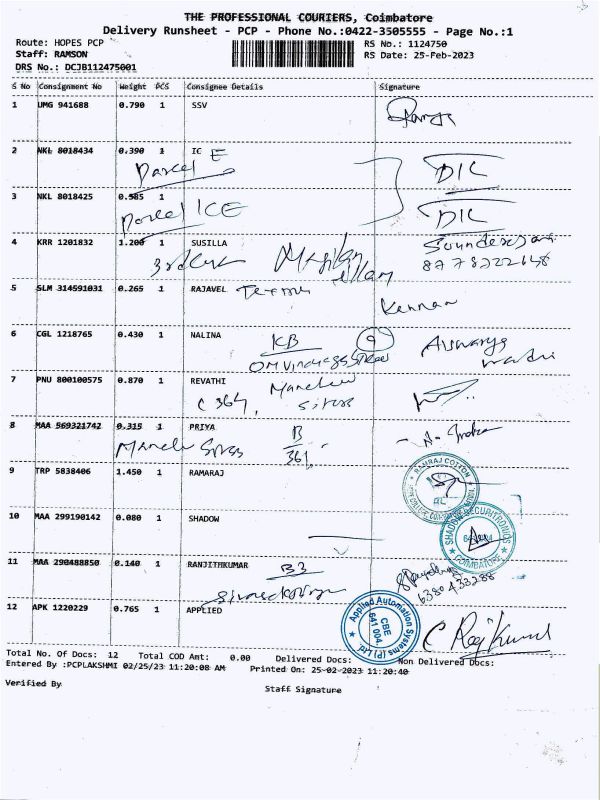 THE PROFESSIONAL COURIERS, Coimbatore
Delivery Runsheet - PCP - Phone No.:0422-3505555 - Page No.:1
Route: HOPES PCP
RS No.: 1124750
Staff: RAMSON
RS Date: 25-Feb-2023
DRS No.: DCJB112475001
S No Consignment No Weight PCS Consignee Details Signature
1 UMG 941688 0.790 1 SSV
2 NKL 8018434 0.390 1 IC E
Parcel
DIC
3 NKL 8018425 0.585 1
Parcel ICE
DIC
4 KRR 1201832 1.200 1 SUSILLA
5 SLM 314591031 0.265 1 RAJAVEL
Kennan
6 CGL 1218765 0.430 1 NALINA
KB 9
7 PNU 800100575 0.870 1 REVATHI
C 364,
8 MAA 569321742 0.315 1 PRIYA
B
361,
9 TRP 5838406 1.450 1 RAMARAJ
RAMRAJ COTTON
10 MAA 299190142 0.080 1 SHADOW
SHADOW SECURITRONICS
COIMBATORE
11 MAA 290488850 0.140 1 RANJITHKUMAR B3
6380438288
12 APK 1220229 0.765 1 APPLIED
Applied Automation Systems (P) Ltd
CBE
641 004
C Rajkumar
Total No. Of Docs: 12 Total COD Amt: 0.00 Delivered Docs: Non Delivered Docs:
Entered By :PCPLAKSHMI 02/25/23 11:20:08 AM Printed On: 25-02-2023 11:20:40
Verified By
Staff Signature